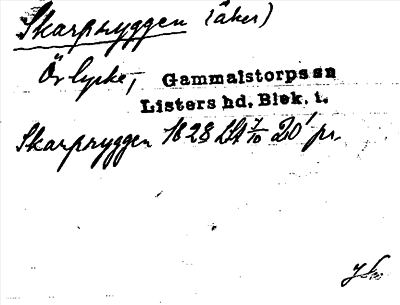 Skarpryggen (åker)
Örlycke,
Gammalstorps sn
Listers hd. Blek. l.
Skarpryggen 1828 7/10